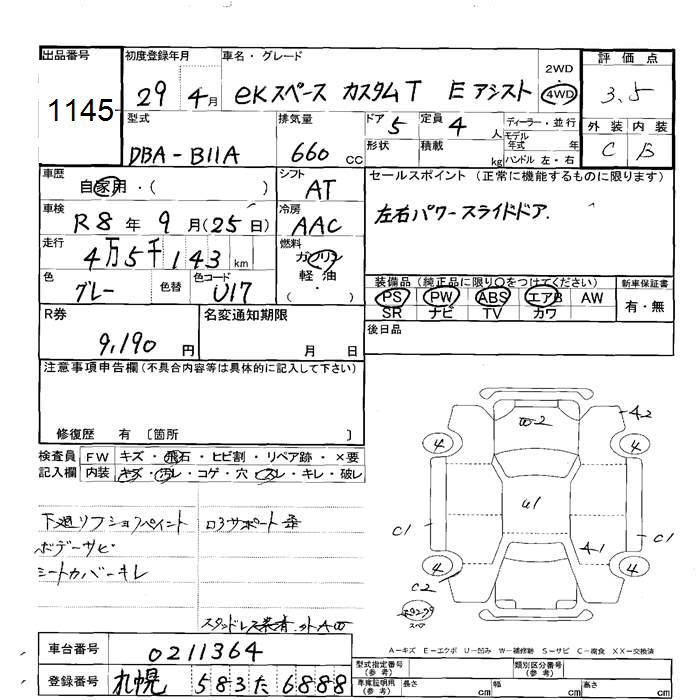 出品番号 初度登録年月 車名・グレード 2WD 評価点
1145 29 4月 eKスペース カスタムT Eアシスト 4WD 3.5
型式 排気量 ドア 5 定員 4人 ディーラー・並行 外装 内装
DBA-B11A 660 CC 形状 積載 kg モデル年式 年 ハンドル 左・右 C B
車歴 シフト セールスポイント (正常に機能するものに限ります)
自家用・( ) AT
車検 冷房 左右パワースライドドア.
R8年 9月(25日) AAC
走行 燃料
4万5千143km ガソリン
色 色替 色コード 軽油 装備品 (純正品に限り○をつけてください) 新車保証書
グレー U17 ・( ) PS PW ABS エアB AW 有・無
R券 名変通知期限 SR ナビ TV カワ
9,190円 月 日 後日品
注意事項申告欄(不具合内容等は具体的に記入して下さい)
修復歴 有 〔箇所 〕
検査員 FW キズ・飛石・ヒビ割・リペア跡・×要
記入欄 内装 キズ・汚レ・コゲ・穴・スレ・キレ・破レ
W-2 A2
4 4
U1
C1 A-1 C1
4 4
C2
スペア
下廻リフショフペイント ロアサポート
ボデーサビ
シートカバーキレ
A-キズ E-エクボ U-凹み W-補修跡 S-サビ C-腐食 XX-交換済
車台番号 0211364
登録番号 札幌 583 た 6888
型式指定番号(参考) 類別区分番号(参考)
車庫証明用(参考) 長さ cm 幅 cm 高さ cm